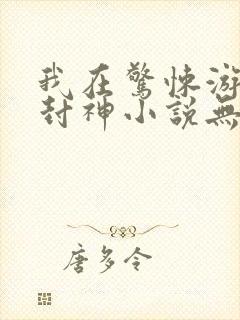 我在驚悚游
封神小說無
唐多令